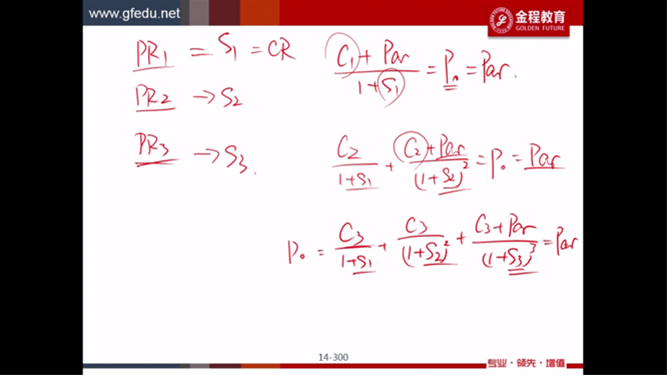 www.gfedu.net
金程教育
GOLDEN FUTURE
PR1 = S1 = CR
(C1 + Par)/(1+S1) = P0 = Par.
PR2 → S2
PR3 → S3.
C2/(1+S1) + (C2+Par)/(1+S2)² = P0 = Par
P0 = C3/(1+S1) + C3/(1+S2)² + (C3+Par)/(1+S3)³ = Par
14-300
专业·领先·增值